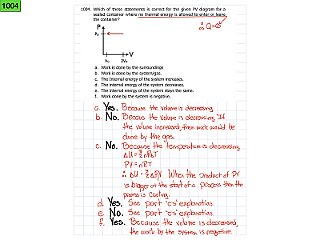 1004
1004. Which of these statements is correct for the given PV diagram for a
sealed container where no thermal energy is allowed to enter or leave
the container?
∴ Q=0
P
P₀
V
V₀ 2V₀
a. Work is done by the surroundings
b. Work is done by the system/gas.
c. The internal energy of the system increases.
d. The internal energy of the system decreases.
e. The internal energy of the system stays the same.
f. Work done by the system is negative.
a. Yes. Because the volume is decreasing
b. No. Because the volume is decreasing. If
the volume increased, then work would be
done by the gas.
c. No. Because the temperature is decreasing
ΔU = 3/2 nRΔT
PV = nRT
∴ ΔU = 3/2 ΔPV When the product of PV
is bigger at the start of a process then the
process is cooling.
d. Yes. See part "c's" explanation
e. No. See part "c's" explanation
f. Yes. Because the volume is decreased,
the work by the system is negative.